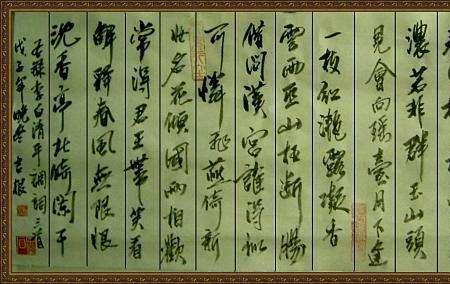 濃若非群玉山頭
見會向瑤臺月下逢
一枝紅灩露凝香
雲雨巫山枉斷腸
借問漢宮誰得似
可憐飛燕倚新
妝名花傾國兩相歡
常得君王帶笑看
解釋春風無限恨
沈香亭北倚闌干
錄李白清平調詞三首
戊子年晚冬